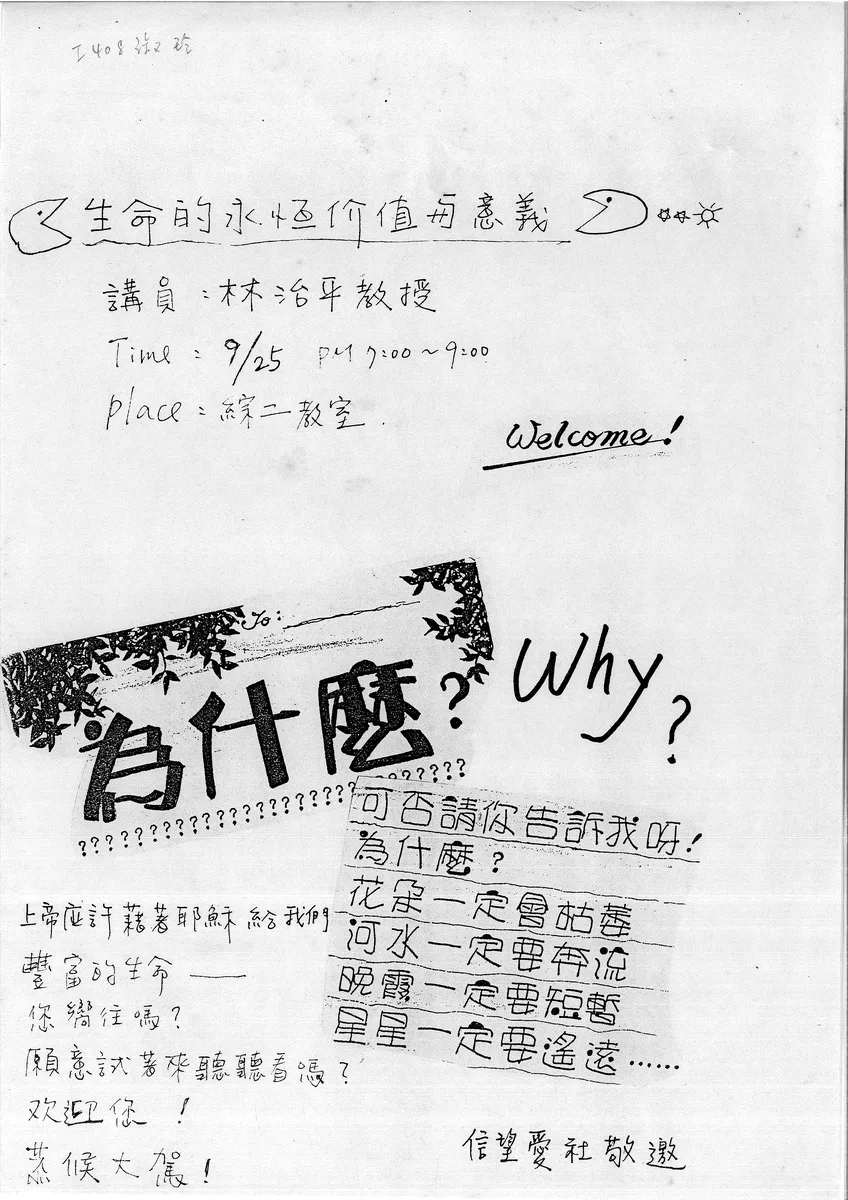 I408 淑玲
生命的永恆价值与意義
講員：林治平教授
Time : 9/25 PM 7:00～9:00
place : 綜二教室.
Welcome!
To:
為什麼?
Why?
? ? ? ? ? ? ? ? ? ? ? ? ? ? ? ? ? ? ? ? ? ?
可否請你告訴我呀!
為什麼?
花朵一定會枯萎
河水一定要奔流
晚霞一定要短暫
星星一定要遙遠……
上帝应許藉著耶穌給我們
豐富的生命——
您嚮往嗎?
願意試著來聽聽看嗎?
欢迎您!
恭候大駕!
信望愛社敬邀